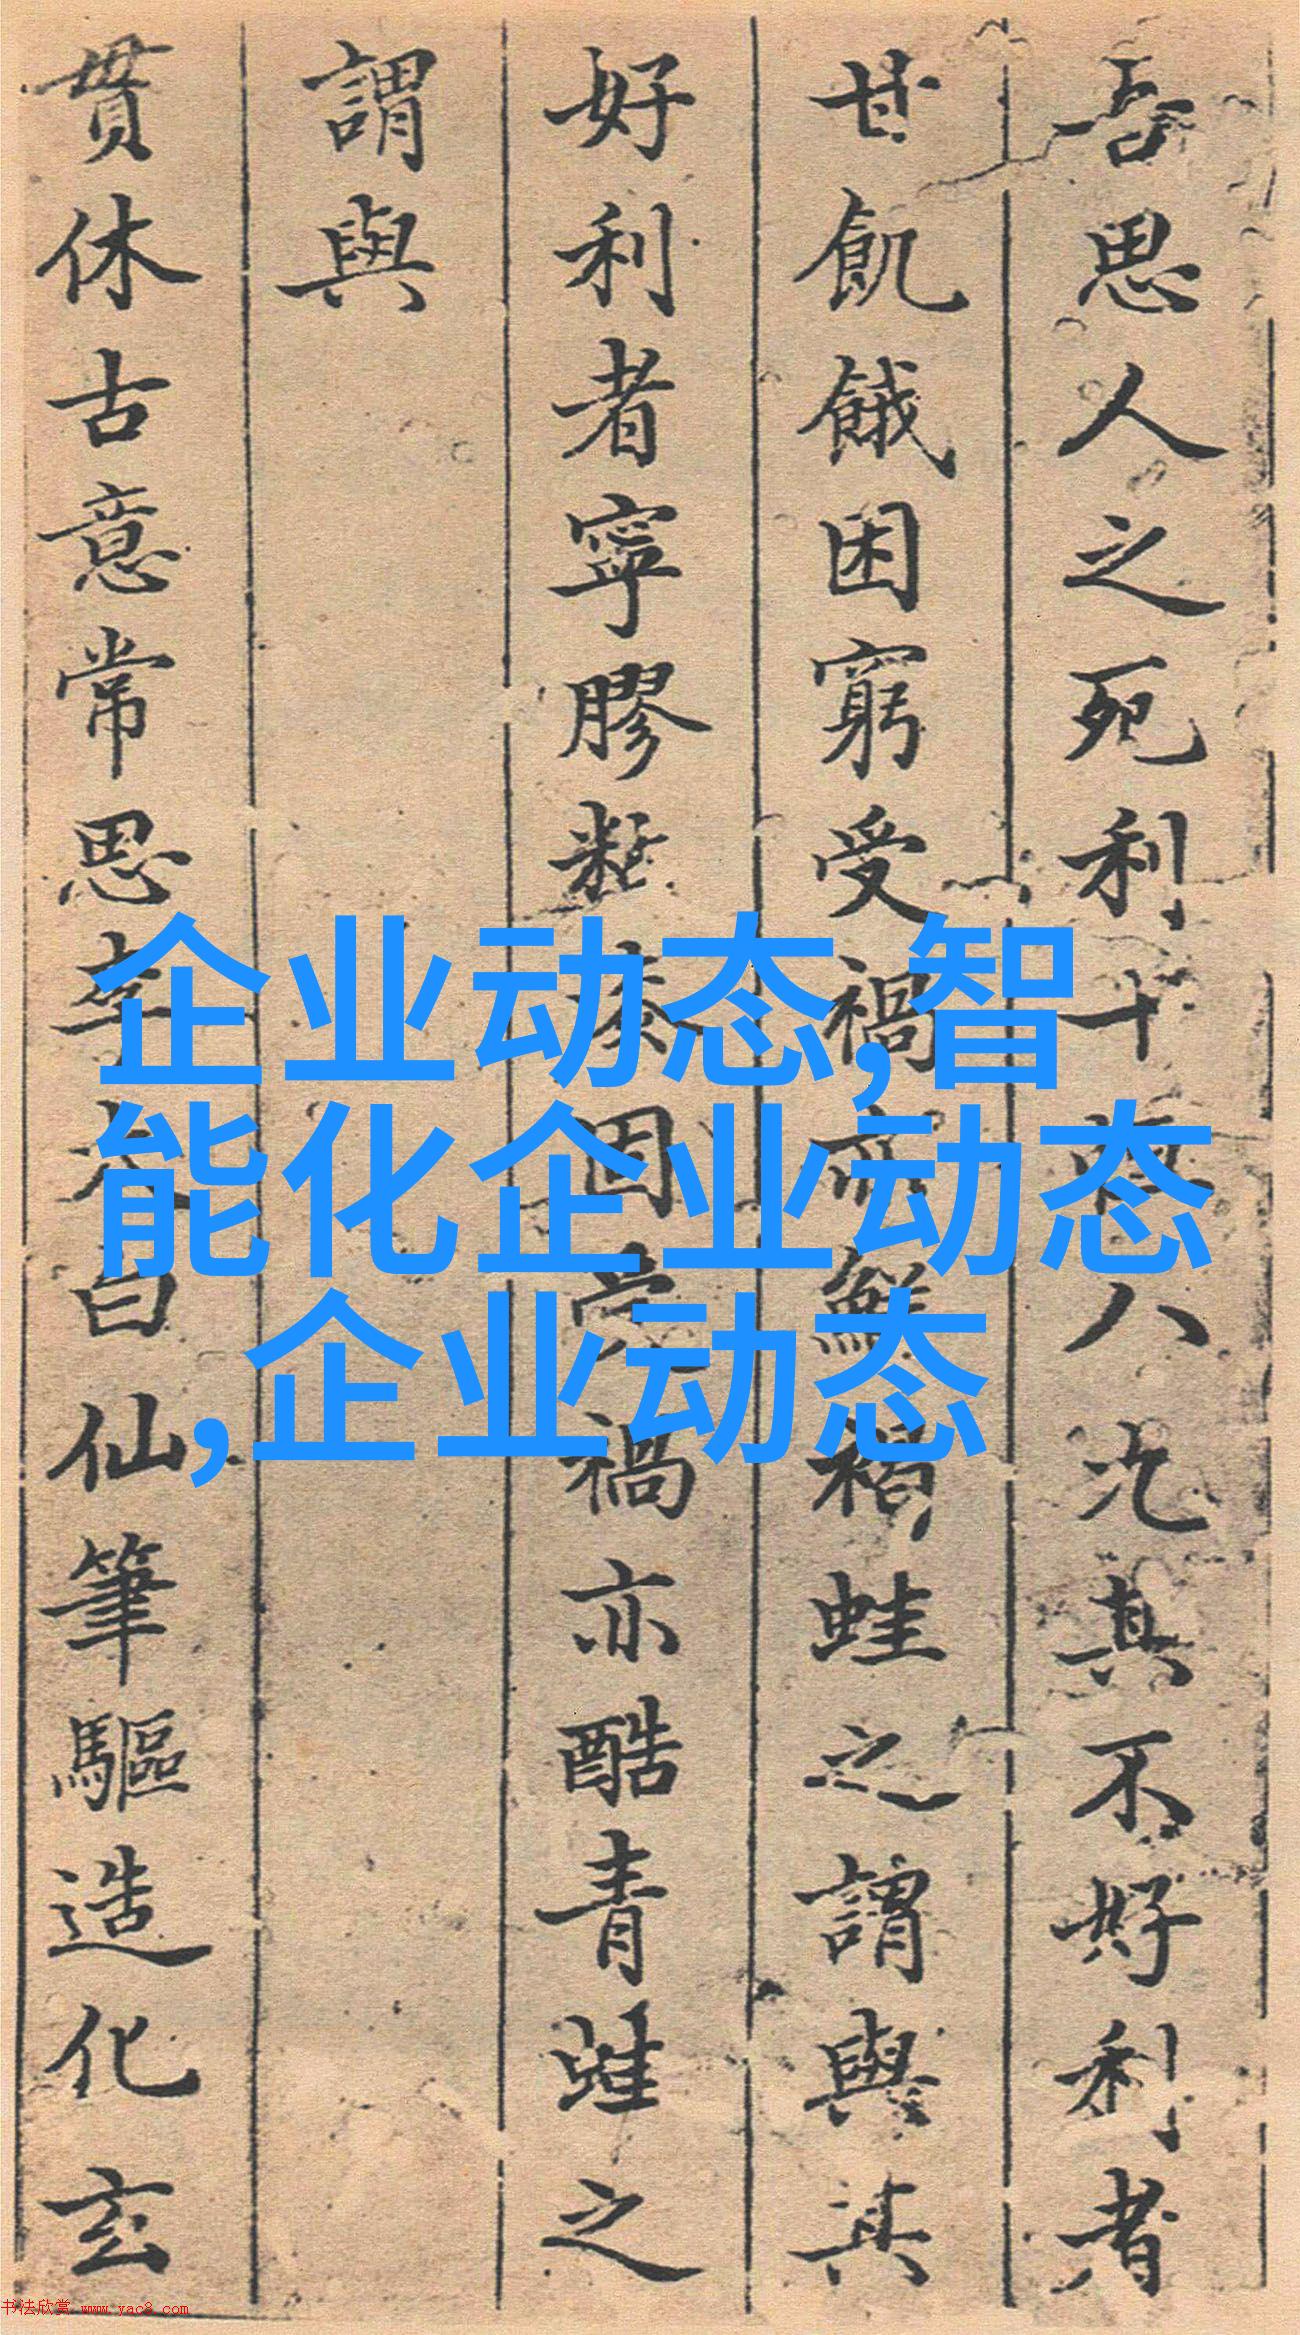 吾思人之死利十八其不好利者
甘飢餓困窮受禍亦鮮褐蛙之謂與其
好利者寧膠黏固禍亦酷青蛙之
謂與
貫休古意常思李太白仙筆驅造化玄
企业动态,智
能化企业动态
,企业动态
书法欣赏 www.yac8.com